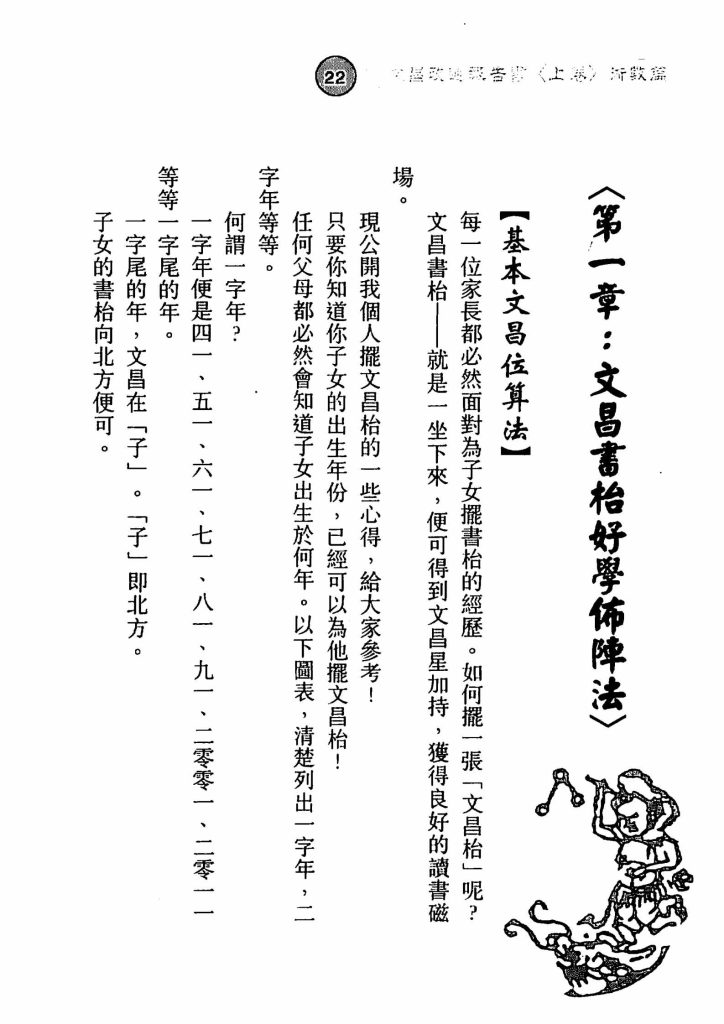 22
告書《上卷》術數篇
〈第一章：文昌書枱好學佈陣法〉
【基本文昌位算法】
每一位家長都必然面對為子女擺書枱的經歷。如何擺一張「文昌枱」呢？
文昌書枱——就是一坐下來，便可得到文昌星加持，獲得良好的讀書磁
場。
現公開我個人擺文昌枱的一些心得，給大家參考！
只要你知道你子女的出生年份，已經可以為他擺文昌枱！
任何父母都必然會知道子女出生於何年。以下圖表，清楚列出一字年，二
字年等等。
何謂一字年？
一字年便是四一、五一、六一、七一、八一、九一、二零零一、二零一一
等等一字尾的年。
一字尾的年，文昌在「子」。「子」即北方。
子女的書枱向北方便可。